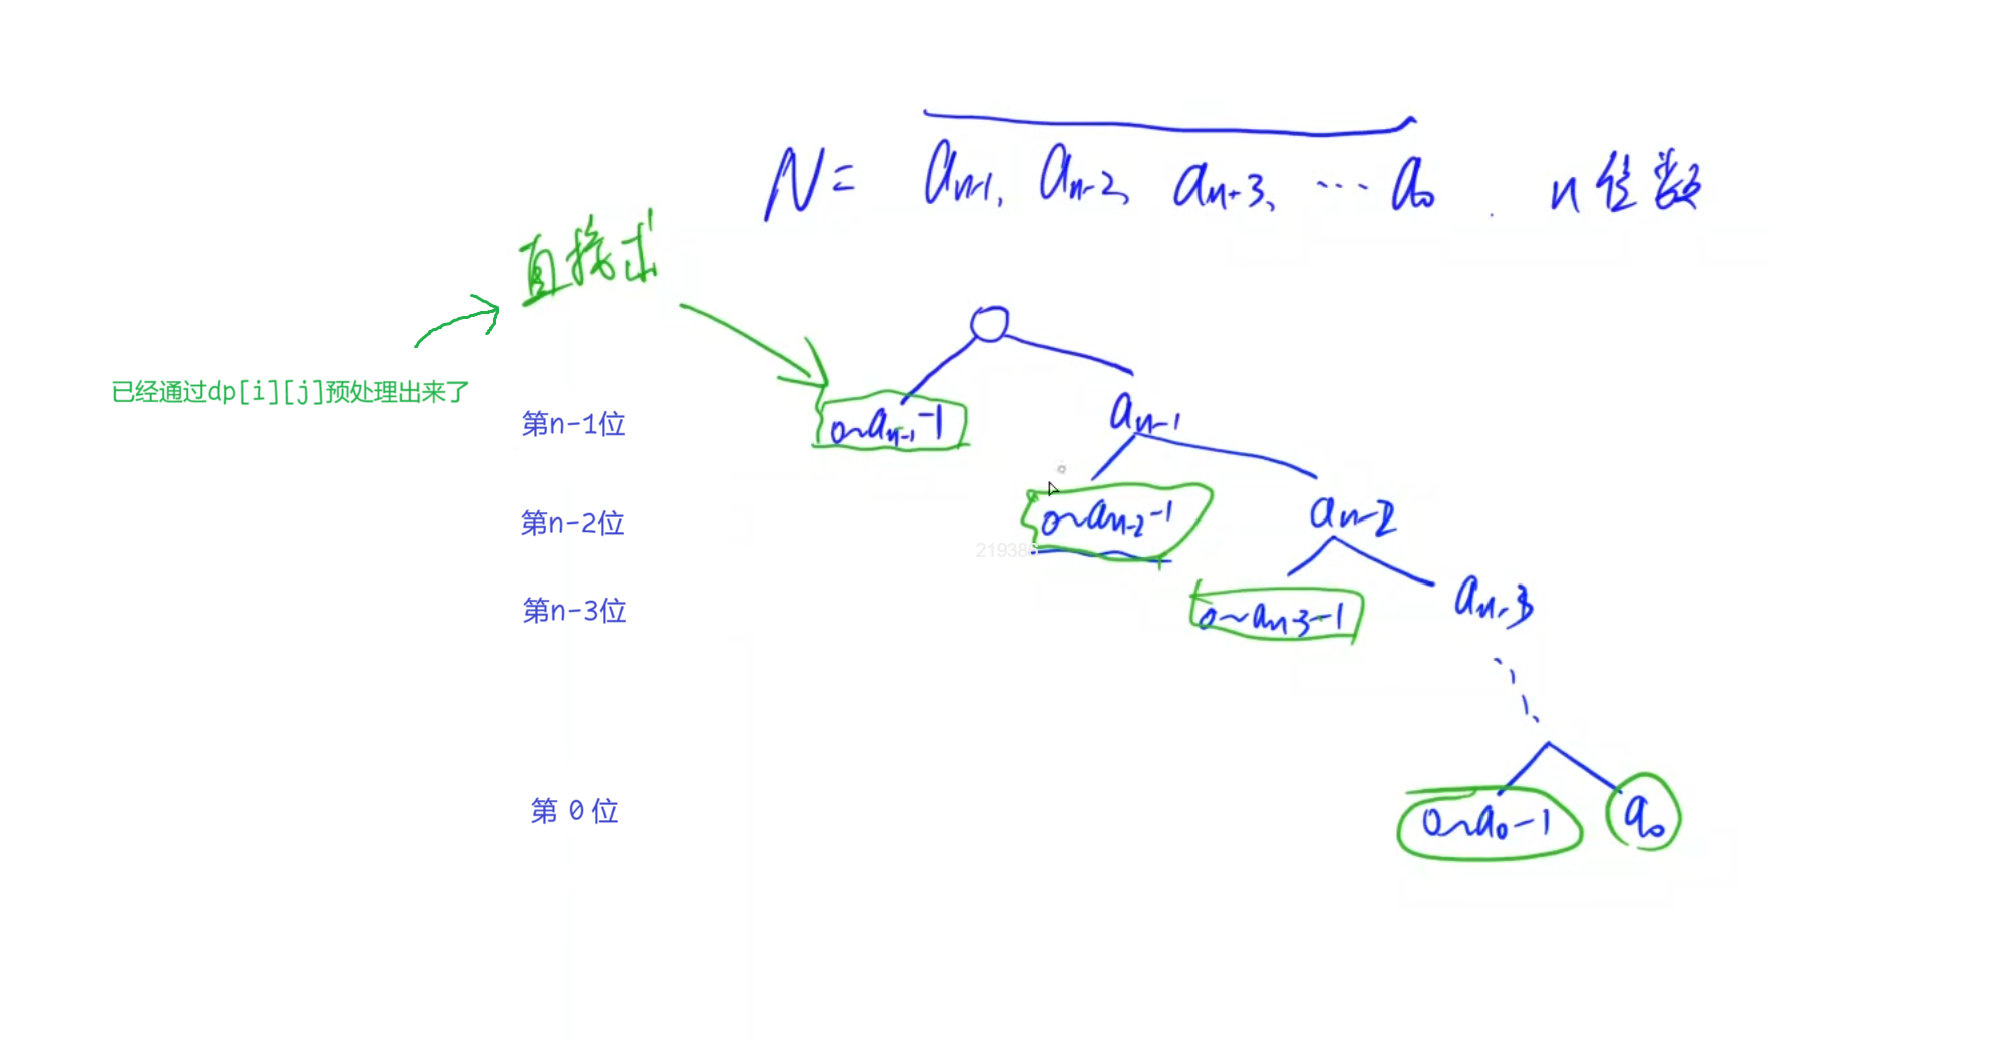 N = aₙ₋₁, aₙ₋₂, aₙ₋₃, ... a₀ . n位数
直接求
已经通过dp[i][j]预处理出来了
第n-1位 0~aₙ₋₁-1 aₙ₋₁
第n-2位 0~aₙ₋₂-1 aₙ₋₂
第n-3位 0~aₙ₋₃-1 aₙ₋₃
第 0 位 0~a₀-1 a₀